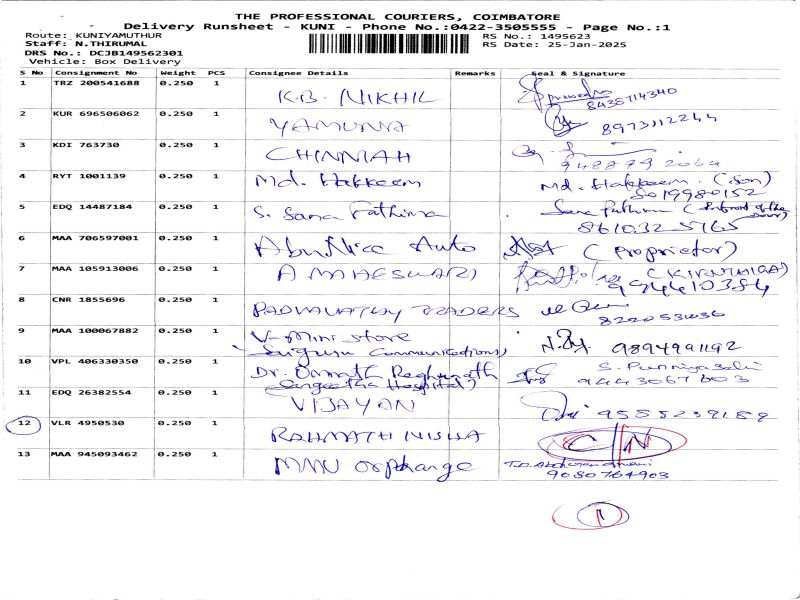 THE PROFESSIONAL COURIERS, COIMBATORE
Delivery Runsheet - KUNI - Phone No.:0422-3505555 - Page No.:1
Route: KUNIYAMUTHUR RS No.: 1495623
Staff: N.THIRUMAL RS Date: 25-Jan-2025
DRS No.: DCJB149562301
Vehicle: Box Delivery
S No Consignment No Weight PCS Consignee Details Remarks Seal & Signature
1 TRZ 200541688 0.250 1 K.B. NIKHIL
8438714340
2 KUR 696506062 0.250 1 YAMUNA 8973112244
3 KDI 763730 0.250 1 CHINNIAH
4 RYT 1001139 0.250 1 Md. Hakkeem Md. Hakkeem (Son)
8019980152
5 EDQ 14487184 0.250 1 S. Sana Fathima Sana Fathima (Infront of the Door)
8610325765
6 MAA 706597001 0.250 1 Auto (Proprietor)
7 MAA 105913006 0.250 1 A MAHESWARI (KIRUTHIGA)
9944610384
8 CNR 1855696 0.250 1 PADMAVATHY TRADERS
9 MAA 100067882 0.250 1 V-Mini store 9894991192
(Saiguru Communications)
10 VPL 406330350 0.250 1 Dr. Reghunath
Sangeetha Hospital) 9443067603
11 EDQ 26382554 0.250 1 VIJAYAN
12 VLR 4950530 0.250 1 RAHMATH NISHA C/N
13 MAA 945093462 0.250 1 MNN
9080764903
1